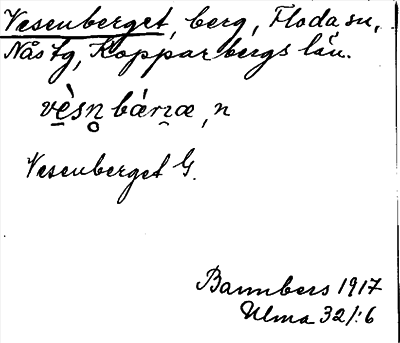 Vesenberget, berg, Floda sn,
Nås tg, Kopparbergs län.
vèsn̥ bærɪæ, n
Vesenberget G.
Bannbers 1917
Ulma 32/:6